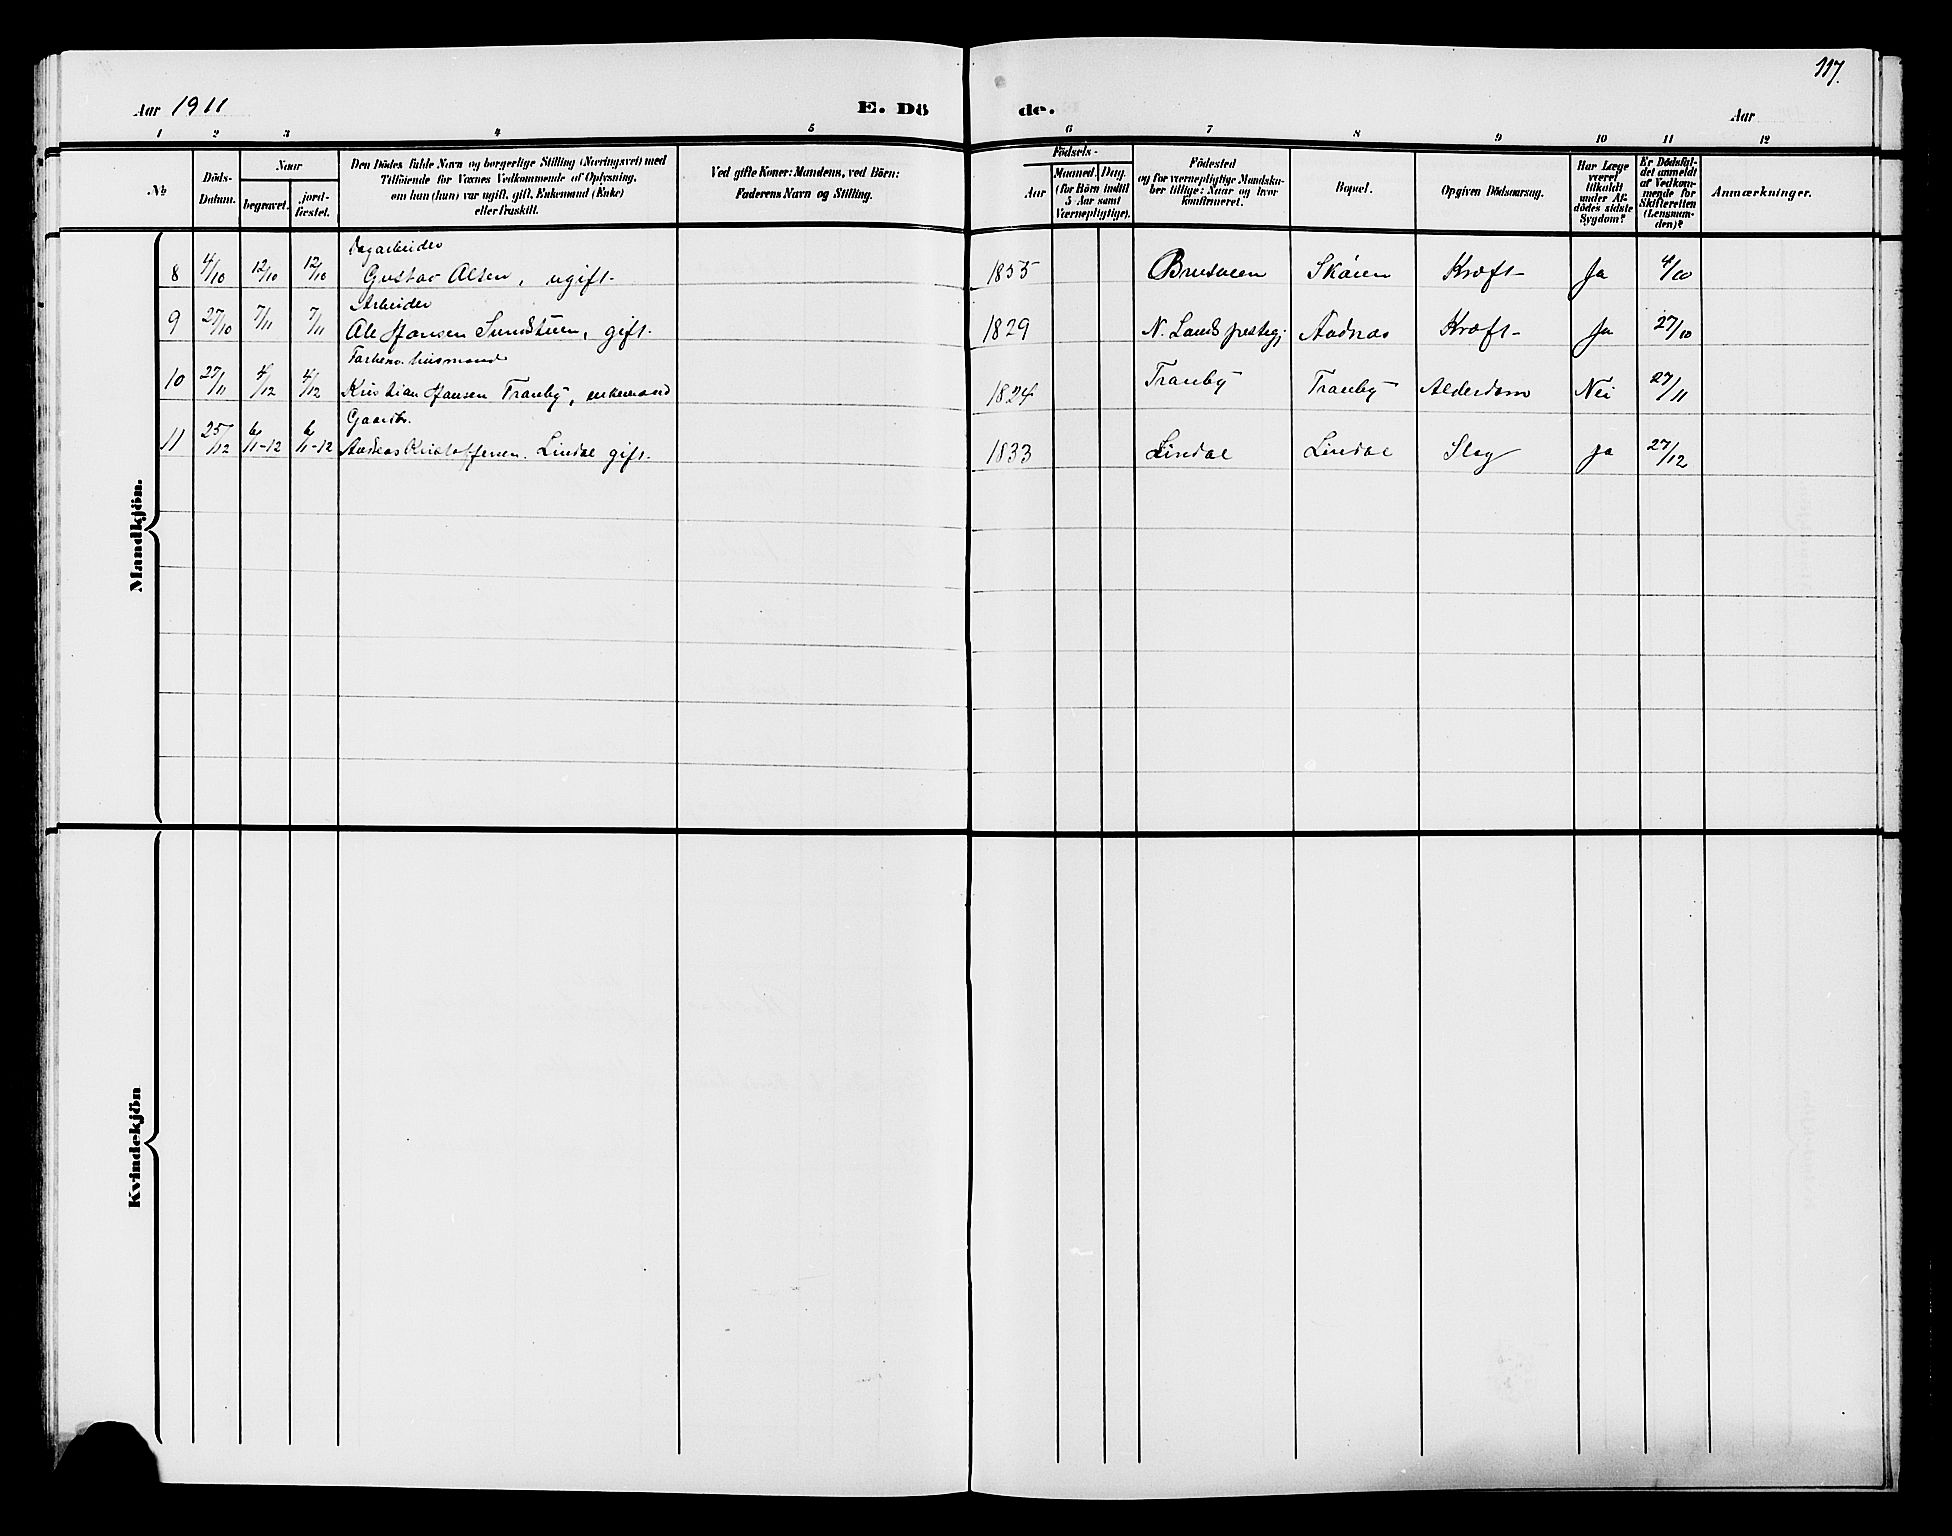 117.
Aar 1911 E. Dö de. Aar
1 2 3 4 5 6 7 8 9 10 11 12
No
Döds-
Datum.
Naar
begravet.
jord-
fæstet.
Den Dödes fulde Navn og borgerlige Stilling (Næringsvei) med
Tilföiende for Voxnes Vedkommende af Oplysning,
om han (hun) var ugift, gift, Enkemand (Enke)
eller fraskilt.
Ved gifte Koner: Mandens, ved Börn:
Faderens Navn og Stilling.
Födsels-
Aar
Maaned. Dag.
(for Börn indtil
5 Aar samt
Værnepligtige).
Födested
og for værnepligtige Mandska-
ber tillige: Naar og hvor
konfirmeret.
Bopæl.
Opgiven Dödsaarsag.
Har Læge
været
tilkaldt
under Af-
dödes sidste
Sygdom?
Er Dödsfal-
det anmeldt
af Vedkom-
mende for
Skifteretten
(Lensman-
den)?
Anmærkninger.
Mandkjön.
Dagarbeider
8 4/10 12/10 12/10 Gustav Olsen, ugift. 1855 Skóien Kræft Ja 4/10
Arbeider
9 27/10 7/11 7/11 Ole Hansen Sundstuen, gift. 1829 N. Lands prestegj. Aadnas Kræft Ja 27/10
husmand
10 27/11 4/12 4/12 Kristian Hansen Tranby, enkemand 1824 Tranby Tranby Alderdom Nei 27/11
Gaardbr.
11 25/12 6/1-12 6/1-12 Andreas Kristoffersen Lindal gift. 1833 Lindal Lindal Slag Ja 27/12
Kvindekjön